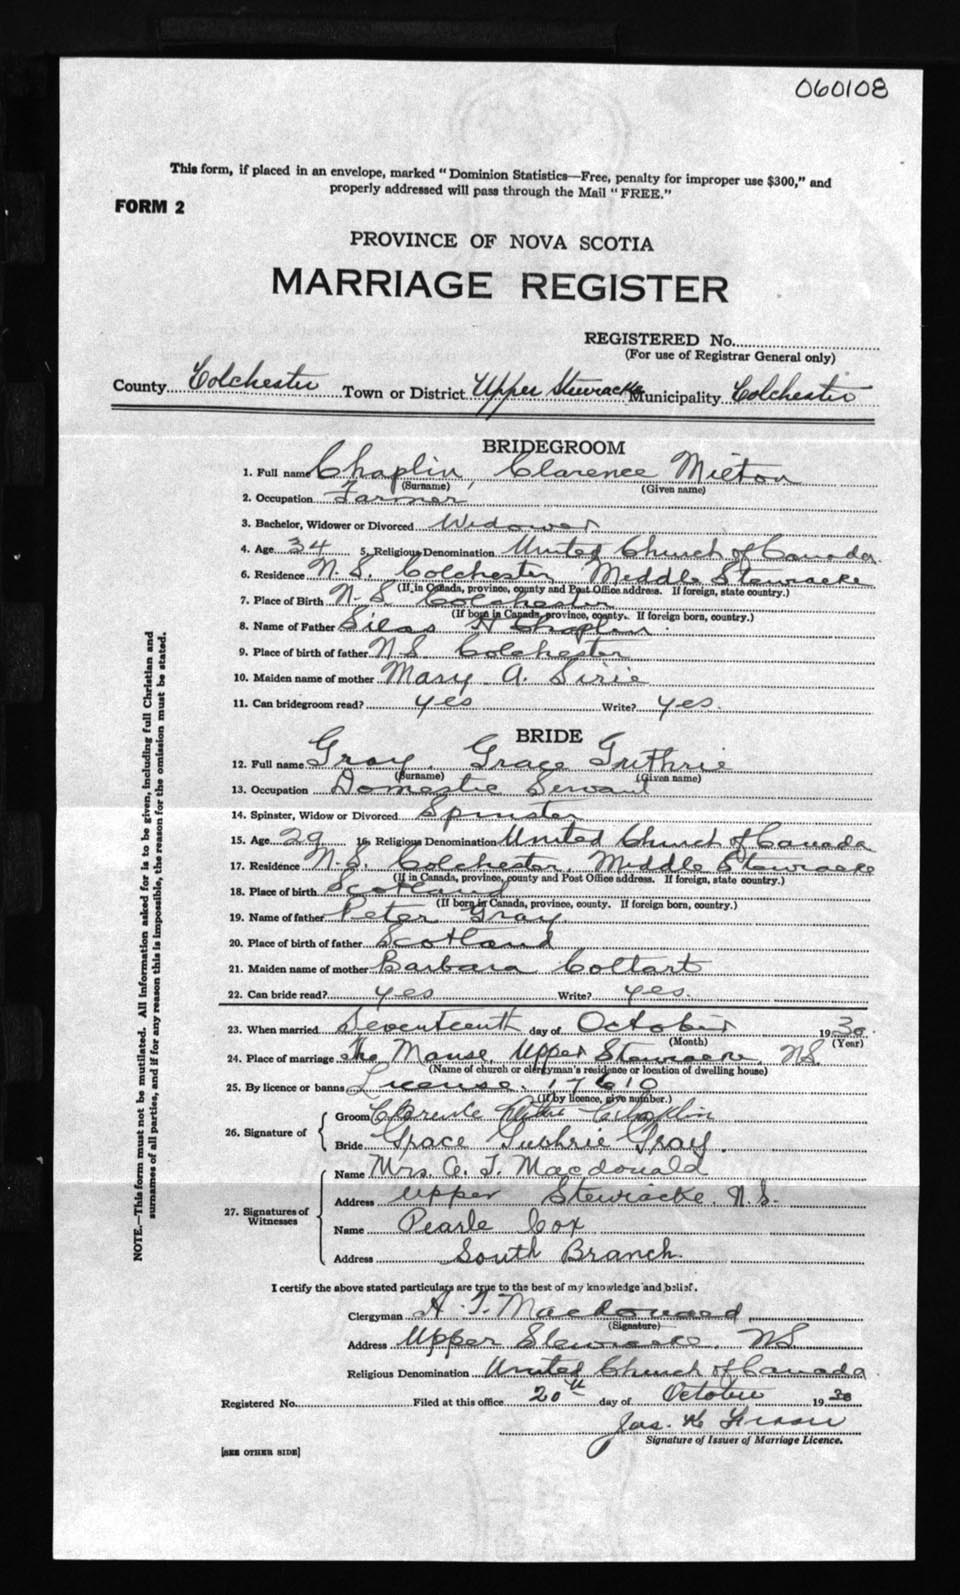 060108
This form, if placed in an envelope, marked "Dominion Statistics—Free, penalty for improper use $300," and
properly addressed will pass through the Mail "FREE."
FORM 2
PROVINCE OF NOVA SCOTIA
MARRIAGE REGISTER
REGISTERED No.
(For use of Registrar General only)
County Colchester Town or District Upper Stewiacke Municipality Colchester
BRIDEGROOM
1. Full name Chaplin, Clarence Milton
(Surname) (Given name)
2. Occupation Farmer
3. Bachelor, Widower or Divorced Widower
4. Age 34 5. Religious Denomination United Church of Canada
6. Residence N.S. Colchester Middle Stewiacke
(If in Canada, province, county and Post Office address. If foreign, state country.)
7. Place of Birth N.S. Colchester
(If born in Canada, province, county. If foreign born, country.)
8. Name of Father Silas H Chaplin
9. Place of birth of father N.S. Colchester
10. Maiden name of mother Mary A.
11. Can bridegroom read? yes Write? yes.
BRIDE
12. Full name Gray, Grace Guthrie
(Surname) (Given name)
13. Occupation Domestic Servant
14. Spinster, Widow or Divorced Spinster
15. Age 29 16. Religious Denomination United Church of Canada
17. Residence N.S. Colchester, Middle Stewiacke
(If in Canada, province, county and Post Office address. If foreign, state country.)
18. Place of birth Scotland
(If born in Canada, province, county. If foreign born, country.)
19. Name of father Peter Gray
20. Place of birth of father Scotland
21. Maiden name of mother Barbara Coltart
22. Can bride read? yes Write? yes.
23. When married Seventeenth day of October 1930.
(Month) (Year)
24. Place of marriage The Manse, Upper Stewiacke, N.S.
(Name of church or clergyman's residence or location of dwelling house)
25. By licence or banns License. 17610
(If by licence, give number.)
26. Signature of
Groom Clarence Chaplin
Bride Grace Guthrie Gray.
27. Signatures of Witnesses
Name Mrs. A. T. Macdonald
Address Upper Stewiacke, N.S.
Name Pearle Cox
Address South Branch.
I certify the above stated particulars are true to the best of my knowledge and belief.
Clergyman A. T. Macdonald
(Signature)
Address Upper Stewiacke, N.S.
Religious Denomination United Church of Canada
Registered No. Filed at this office 20th day of October 1930
Jas. K
Signature of Issuer of Marriage Licence.
[SEE OTHER SIDE]
NOTE.—This form must not be mutilated. All information asked for is to be given, including full Christian and
surnames of all parties, and if for any reason this is impossible, the reason for the omission must be stated.